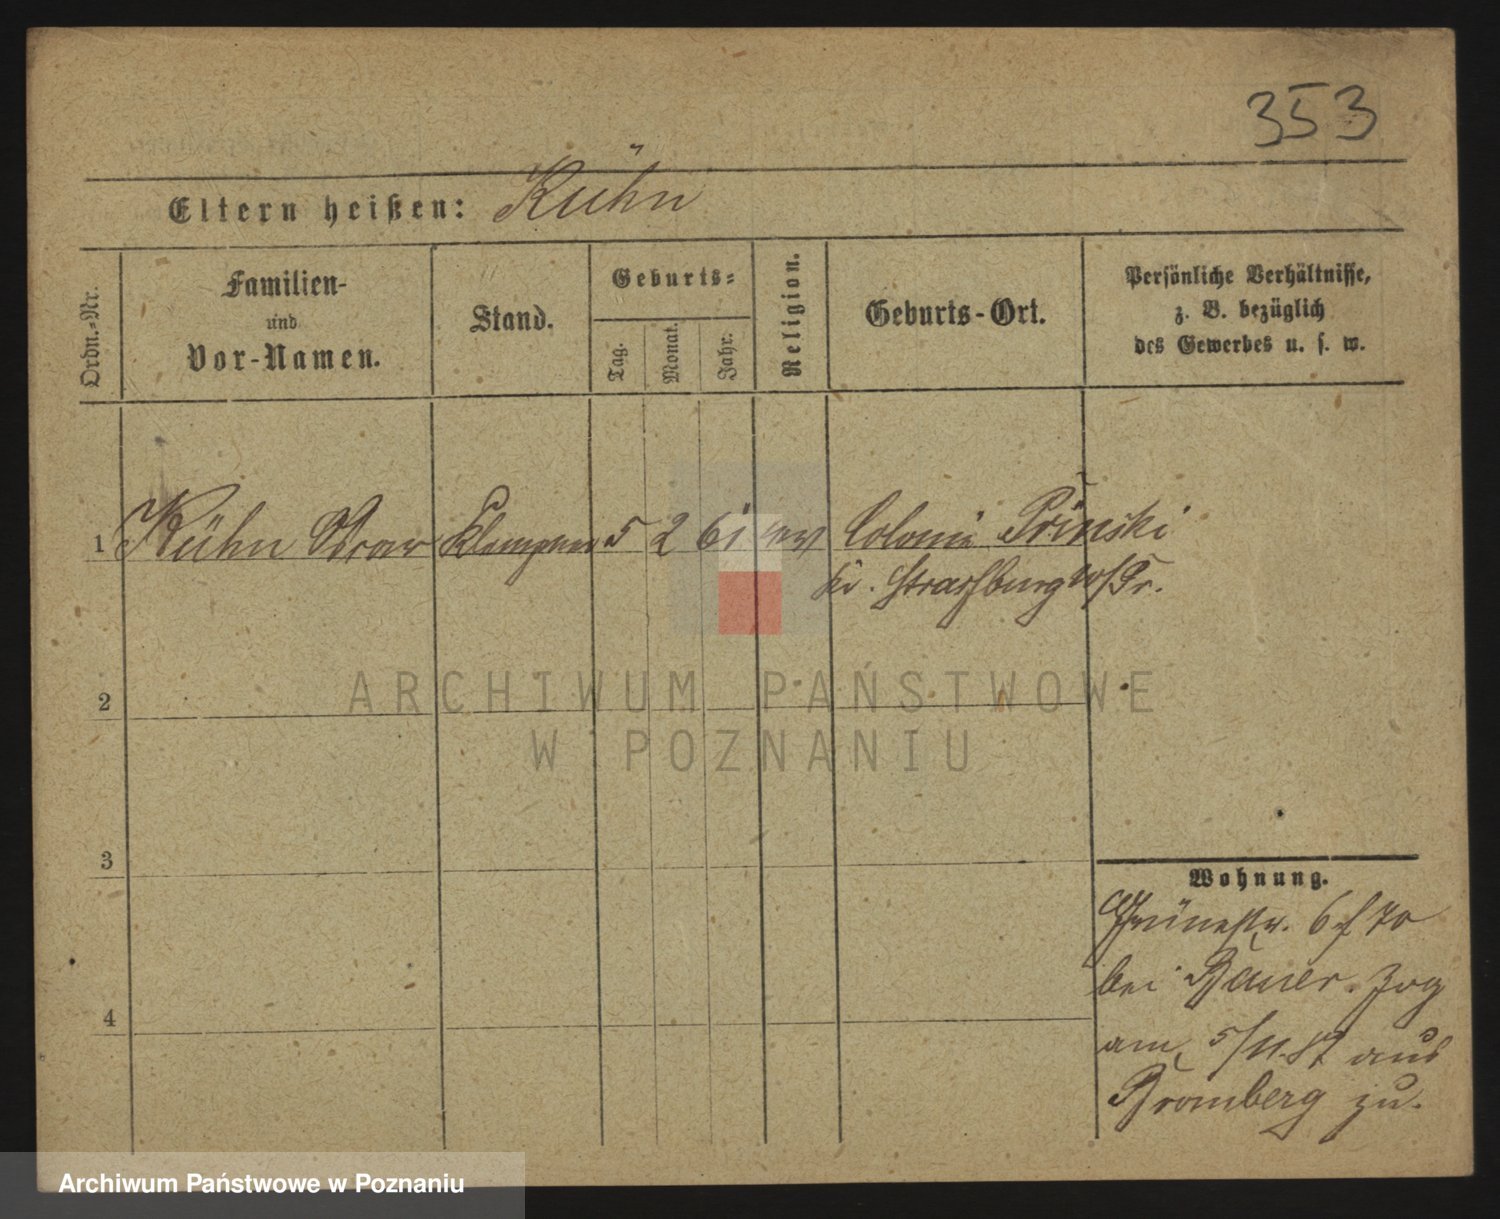 353
Eltern heißen: Kühn
Ordn.-Nr.
Familien-
und
Vor-Namen.
Stand.
Geburts-
Tag.
Monat.
Jahr.
Religion.
Geburts-Ort.
Persönliche Verhältnisse,
z. B. bezüglich
des Gewerbes u. s. w.
1 Kühn Klempner 5 2 61 ev Colonie
Kr. Strasburg W/Pr.
2
3
4
Wohnung.
Grünestr. 6
bei Bauer. Zog
am 5/11.87 aus
Bromberg zu.
ARCHIWUM PAŃSTWOWE
W POZNANIU
Archiwum Państwowe w Poznaniu